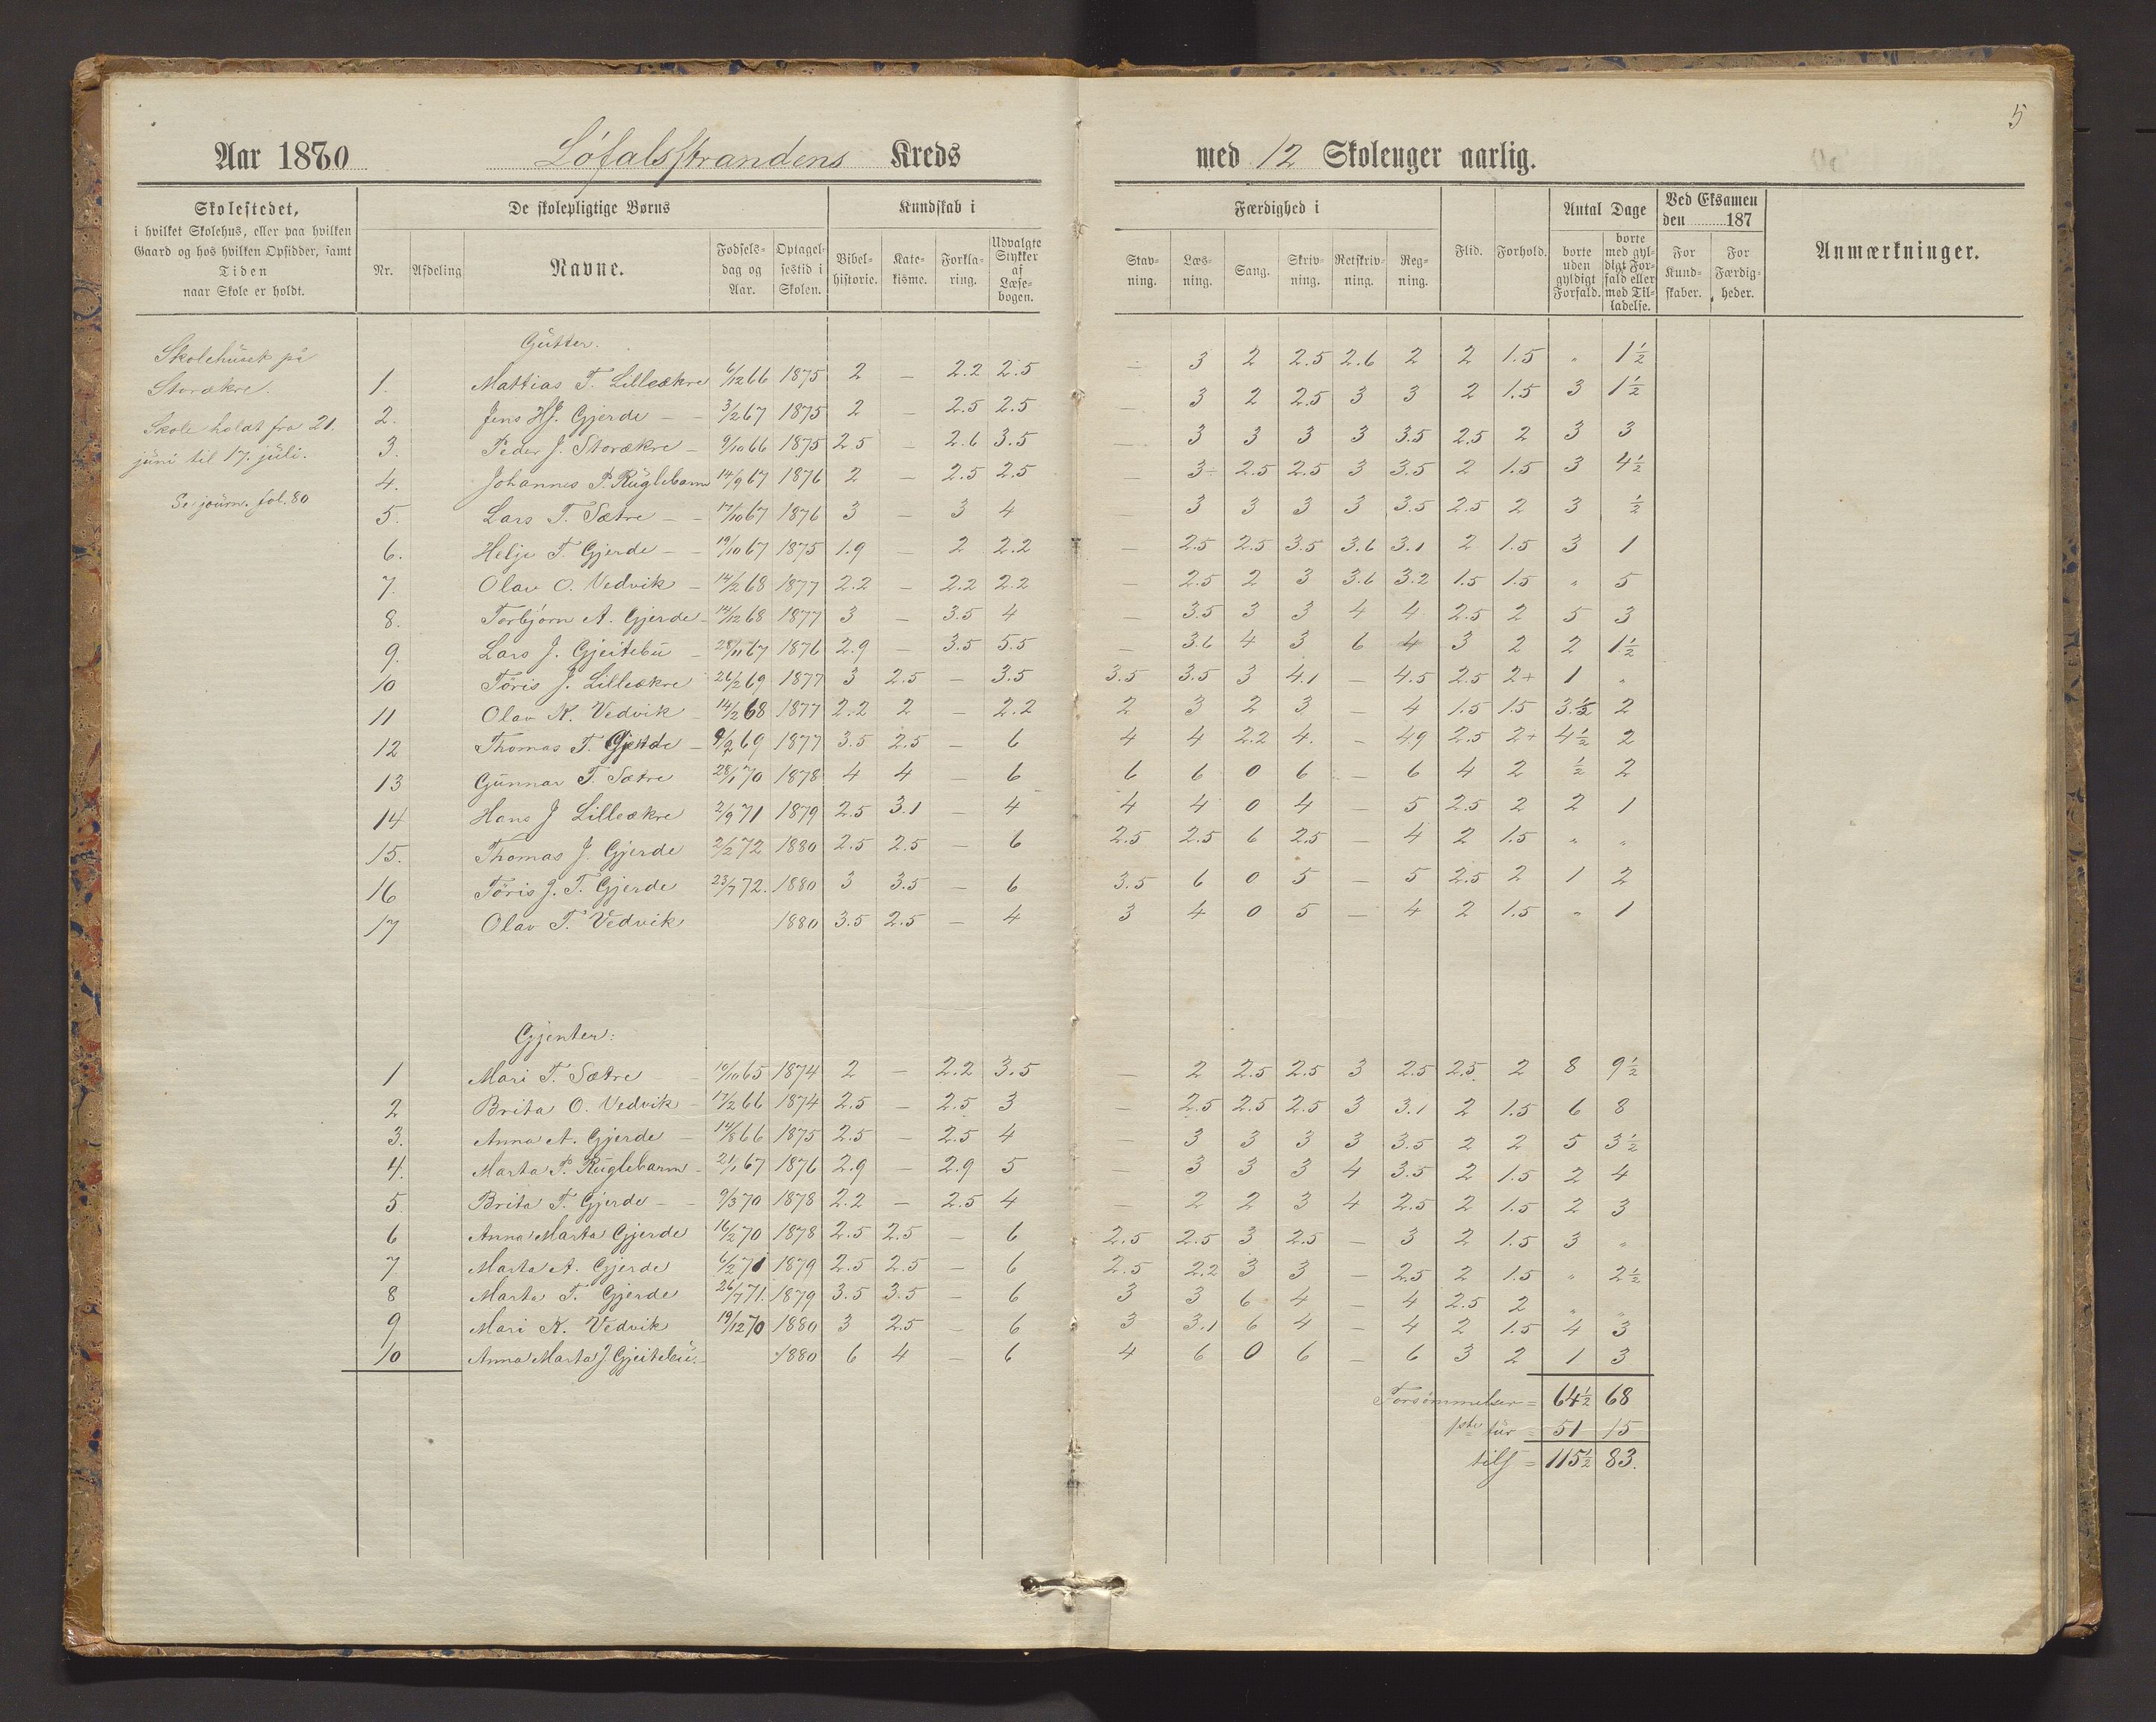 5
Aar 1880 Løfalsstrandens Kreds med 12 Skoleuger aarlig.
Skolestedet, i hvilket Skolehus, eller paa hvilken Gaard og hos hvilken Opsidder, samt Tiden naar Skole er holdt.
De skolepligtige Børns
Nr. Afdeling Navne. Fødsels-dag og Aar. Optagel-sestid i Skolen.
Kundskab i
Bibel-historie. Kate-kisme. Forkla-ring. Udvalgte Stykker af Læse-bogen.
Færdighed i
Stav-ning. Læs-ning. Sang. Skriv-ning. Retskriv-ning. Reg-ning.
Flid. Forhold.
Antal Dage
borte uden gyldigt Forfald. borte med gyl-digt For-fald eller med Til-ladelse.
Ved Eksamen den 187
For Kund-skaber. For Færdig-heder.
Anmærkninger.
Skolehuset på
Storækre.
Skole holdt fra 21.
juni til 17. juli.
Se journ. fol. 80
Gutter.
1. Mattias T. Lilleækre 6/12 66 1875 2 – 2.2 2.5 – 3 2 2.5 2.6 2 2 1.5 " 1½
2. Jens HJ. Gjerde 3/2 67 1875 2 – 2.5 2.5 – 3 2 2.5 3 3 2 1.5 3 1½
3. Peder J. Storækre 9/10 66 1875 2.5 – 2.6 3.5 – 3 3 3 3 3.5 2.5 2 3 3
4. Johannes P. Ruglebarm 14/9 67 1876 2 – 2.5 2.5 – 3÷ 2.5 2.5 3 3.5 2 1.5 3 4½
5. Lars T. Sætre 17/10 67 1876 3 – 3 4 – 3 3 3 3 3.5 2.5 2 3 ½
6. Helje T. Gjerde 19/10 67 1875 1.9 – 2 2.2 – 2.5 2.5 3.5 3.6 3.1 2 1.5 3 1
7. Olav O. Vedvik 14/2 68 1877 2.2 – 2.2 2.2 – 2.5 2 3 3.6 3.2 1.5 1.5 " 5
8. Torbjørn A. Gjerde 14/12 68 1877 3 – 3.5 4 – 3.5 3 3 4 4 2.5 2 5 3
9. Lars J. Gjeitebu 28/11 67 1876 2.9 – 3.5 5.5 – 3.6 4 3 6 4 3 2 2 1½
10 Tøris J. Lilleækre 26/2 69 1877 3 2.5 – 3.5 3.5 3.5 3 4.1 – 4.5 2.5 2+ 1 "
11 Olav K. Vedvik 14/2 68 1877 2.2 2 – 2.2 2 3 2 3 – 4 1.5 1.5 3.½ 2
12 Thomas T. Gjerde 9/2 69 1877 3.5 2.5 – 6 4 4 2.2 4. – 4.9 2.5 2+ 4½ 2
13 Gunnar T. Sætre 28/1 70 1878 4 4 – 6 6 6 0 6 – 6 4 2 ½ 2
14 Hans J Lilleækre 2/9 71 1879 2.5 3.1 – 4 4 4 0 4 – 5 2.5 2 2 1
15. Thomas J. Gjerde 2/2 72 1880 2.5 2.5 – 6 2.5 2.5 6 2.5 – 4 2 1.5 " "
16 Tøris J. T. Gjerde 23/7 72. 1880 3 3.5 – 6 3.5 6 0 5 – 5 2.5 2 1 2
17 Olav T. Vedvik 1880 3.5 2.5 – 4 3 4 0 5 – 4 2 1.5 " 1
Gjenter:
1 Mari T. Sætre 10/10 65 1874 2 – 2.2 3.5 – 2 2.5 2.5 3 2.5 2.5 2 8 9½
2 Brita O. Vedvik 17/2 66 1874 2.5 – 2.5 3 – 2.5 2.5 2.5 3 3.1 2 1.5 6 8
3. Anna A. Gjerde 14/8 66 1875 2.5 – 2.5 4 – 3 3 3 3 3.5 2 2 5 3½
4. Marta P. Ruglebarm 21/1 67 1876 2.9 – 2.9 5 – 3 3 3 4 3.5 2 1.5 2 4
5. Brita T. Gjerde 9/3 70 1878 2.2 – 2.5 4 – 2 2 3 4 2.5 2 1.5 2 3
6 Anna Marta Gjerde 16/2 70 1878 2.5 2.5 – 6 2.5 2.5 3 2.5 – 3 2 1.5 3 "
7 Marta A. Gjerde 6/2 71 1879 2.5 2.5 – 6 2.5 2.2 3 3 – 2.5 2 1.5 " 2½
8 Marta T. Gjerde 26/7 71. 1879 3.5 3.5 – 6 3 3 6 4 – 4 2.5 2 " "
9 Mari K. Vedvik 19/12 70 1880 3 2.5 – 6 3 3.1 6 4 – 4 2 1.5 4 3
10 Anna Marta J. Gjeitebu. 1880 6 4 – 6 4 6 0 6 – 6 3 2 1 3
Forsømmelser = 64½ 68
1ste tur = 51 15
tils = 115½ 83.